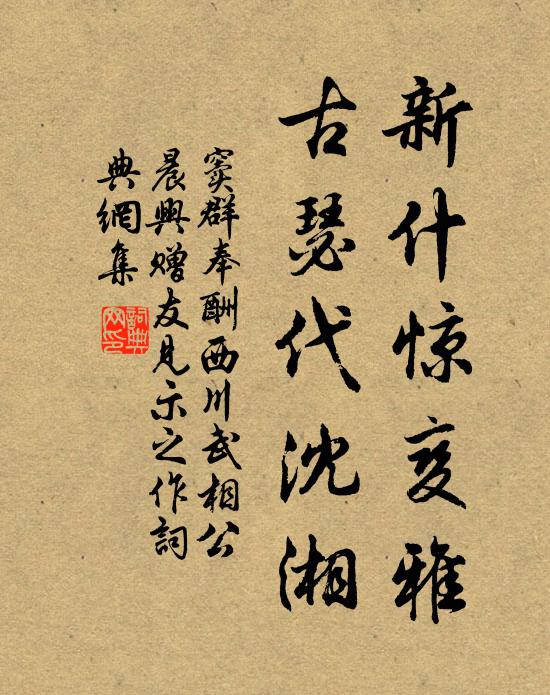 新什惊变雅
古瑟代沈湘
窦群奉酬西川武相公
晨興赠友見示之作詞
典網集
詞典网印